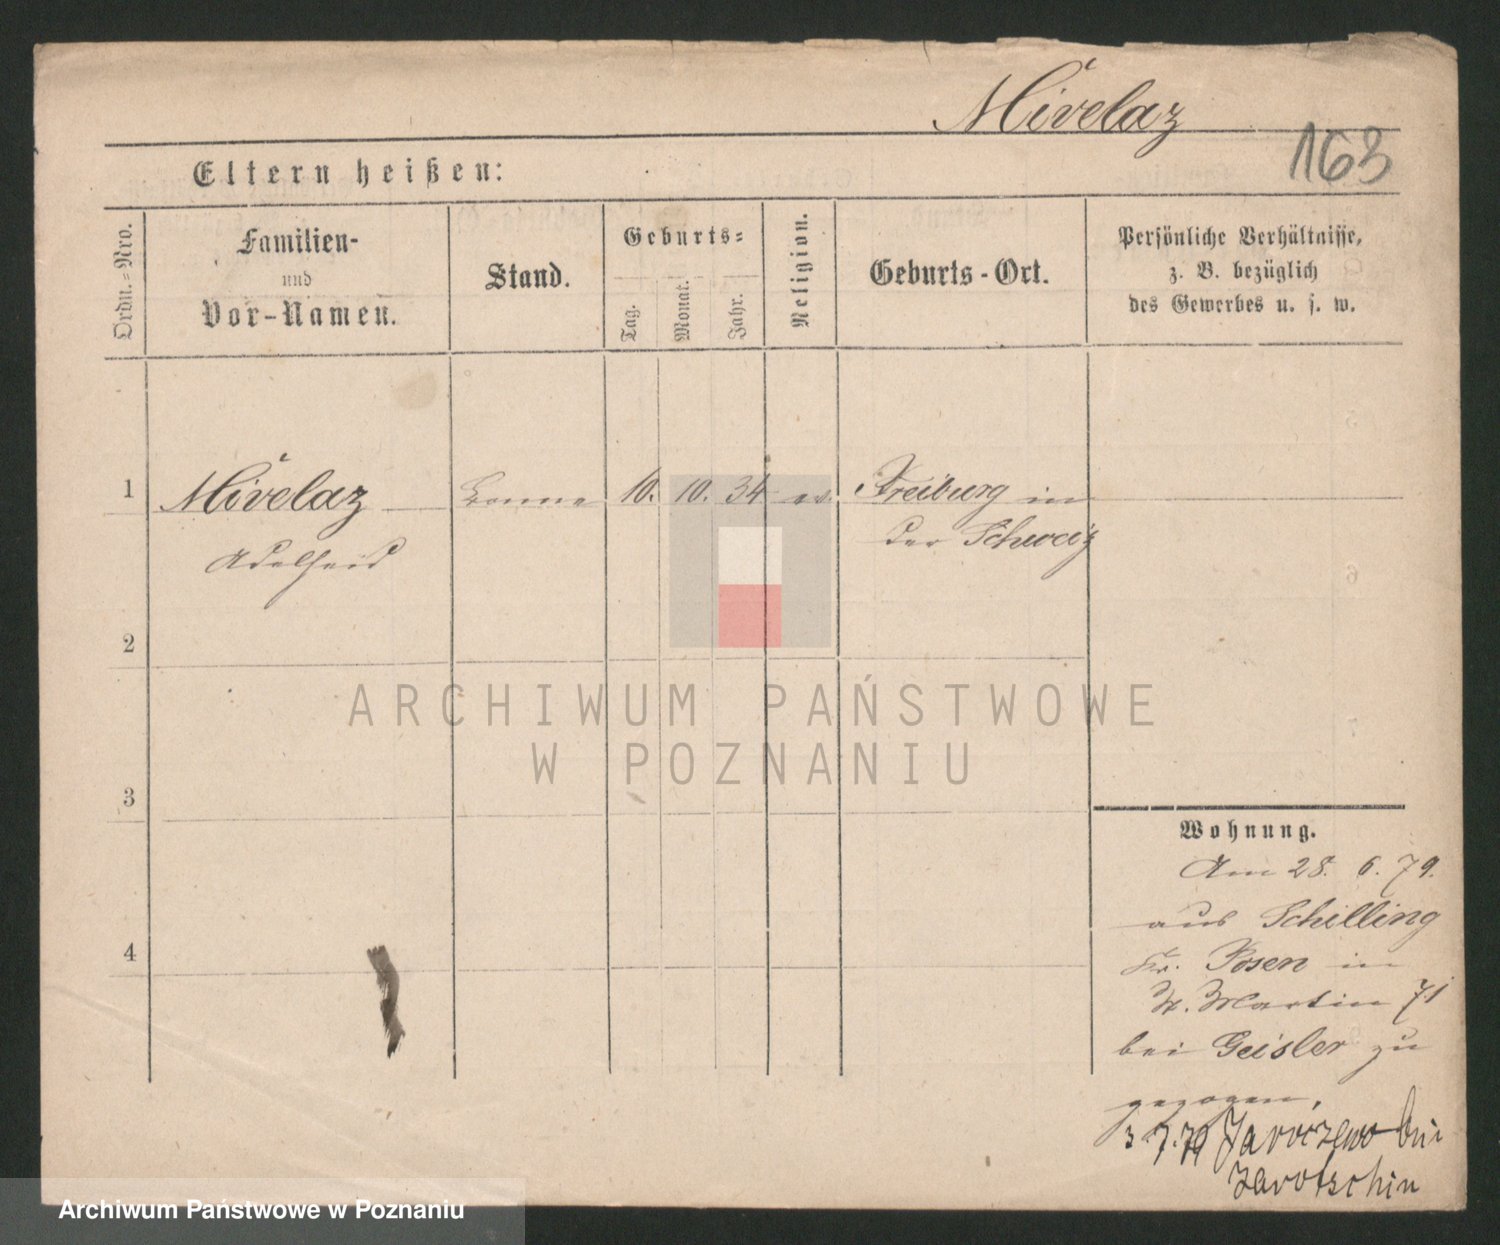 Mivelaz
163
Eltern heißen:
Ordn.-Nro.
Familien-
und
Vor-Namen.
Stand.
Geburts-
Tag.
Monat.
Jahr.
Religion.
Geburts-Ort.
Persönliche Verhältnisse,
z. B. bezüglich
des Gewerbes u. s. w.
1
Mivelaz
Adelheid
Bonne
10. 10. 34
ev.
Freiburg in
der Schweiz
2
3
4
Wohnung.
Am 28. 6. 79.
aus Schilling
Kr. Posen in
St. Martin 71
bei Geisler zu
gezogen,
3 7. 79 Jaroczewo bei
Jarotschin
ARCHIWUM PAŃSTWOWE
W POZNANIU
Archiwum Państwowe w Poznaniu